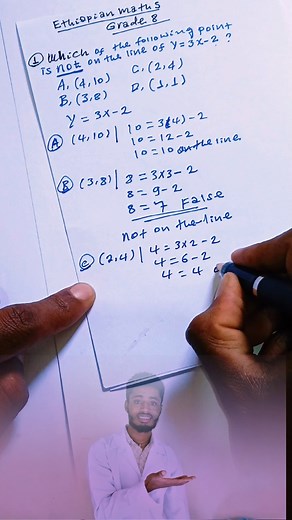 Ethiopian maths
Grade 8
① Which of the following point
is not on the line of y=3x-2 ?
A, (4,10) C, (2,4)
B, (3,8) D, (1,1)
y = 3x-2
Ⓐ (4,10) | 10=3(4)-2
10 = 12-2
10=10 on the line.
Ⓑ (3,8) | 8 = 3x3-2
8 = 9-2
8=7 False
not on the line
Ⓒ (2,4) | 4=3x2-2
4=6-2
4=4